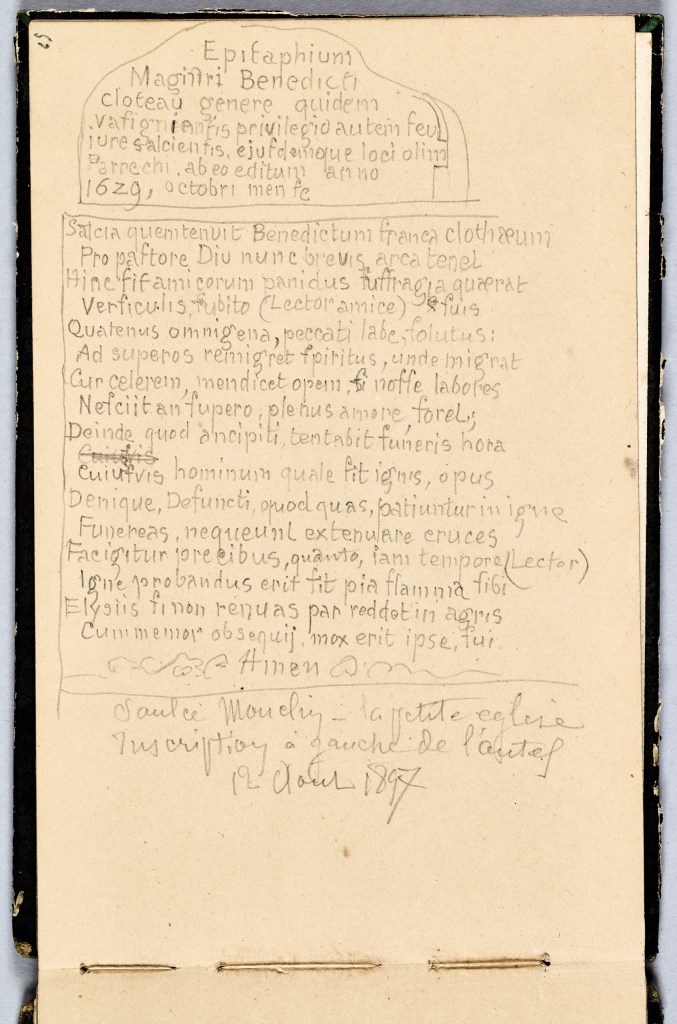 Epitaphium
Magiſtri Benedicti
cloteau genere quidem
vaſignienſis privilegio autem ſeu
iure salcienſis, ejuſdemque loci olim
Parrechi, ab eo editum anno
1629, octobri menſe
Salcia quem tenuit Benedictum franca clothæum
Pro paſtore Diu nunc brevis, arca tenet
Hinc ſit amicorum panidus ſuffragia quærat
Verſiculis, ſubito (Lector amice) ſuis
Quatenus omnigena, peccati labe, ſolutus:
Ad superos remigret ſpiritus, unde migrat
Cur celerem, mendicet opem, ſi noſſe labores
Neſciit an ſupero, plenus amore, foret;
Deinde quod ancipiti, tentabit funeris hora
Cuiuſvis hominum quale ſit ignis, opus
Denique, Defuncti, quod quas, patiuntur in igne
Funereas, nequeunt extenuare cruces
Fac igitur precibus, quanto, iam tempore (Lector)
Igne probandus erit ſit pia flamma tibi
Elysiis ſi non renuas par reddet in agris
Cum memor obsequij, mox erit ipse, tui.
Amen
Saulce Mouclin _ la petite eglise
Inscription à gauche de l'autel
12 Aout 1897